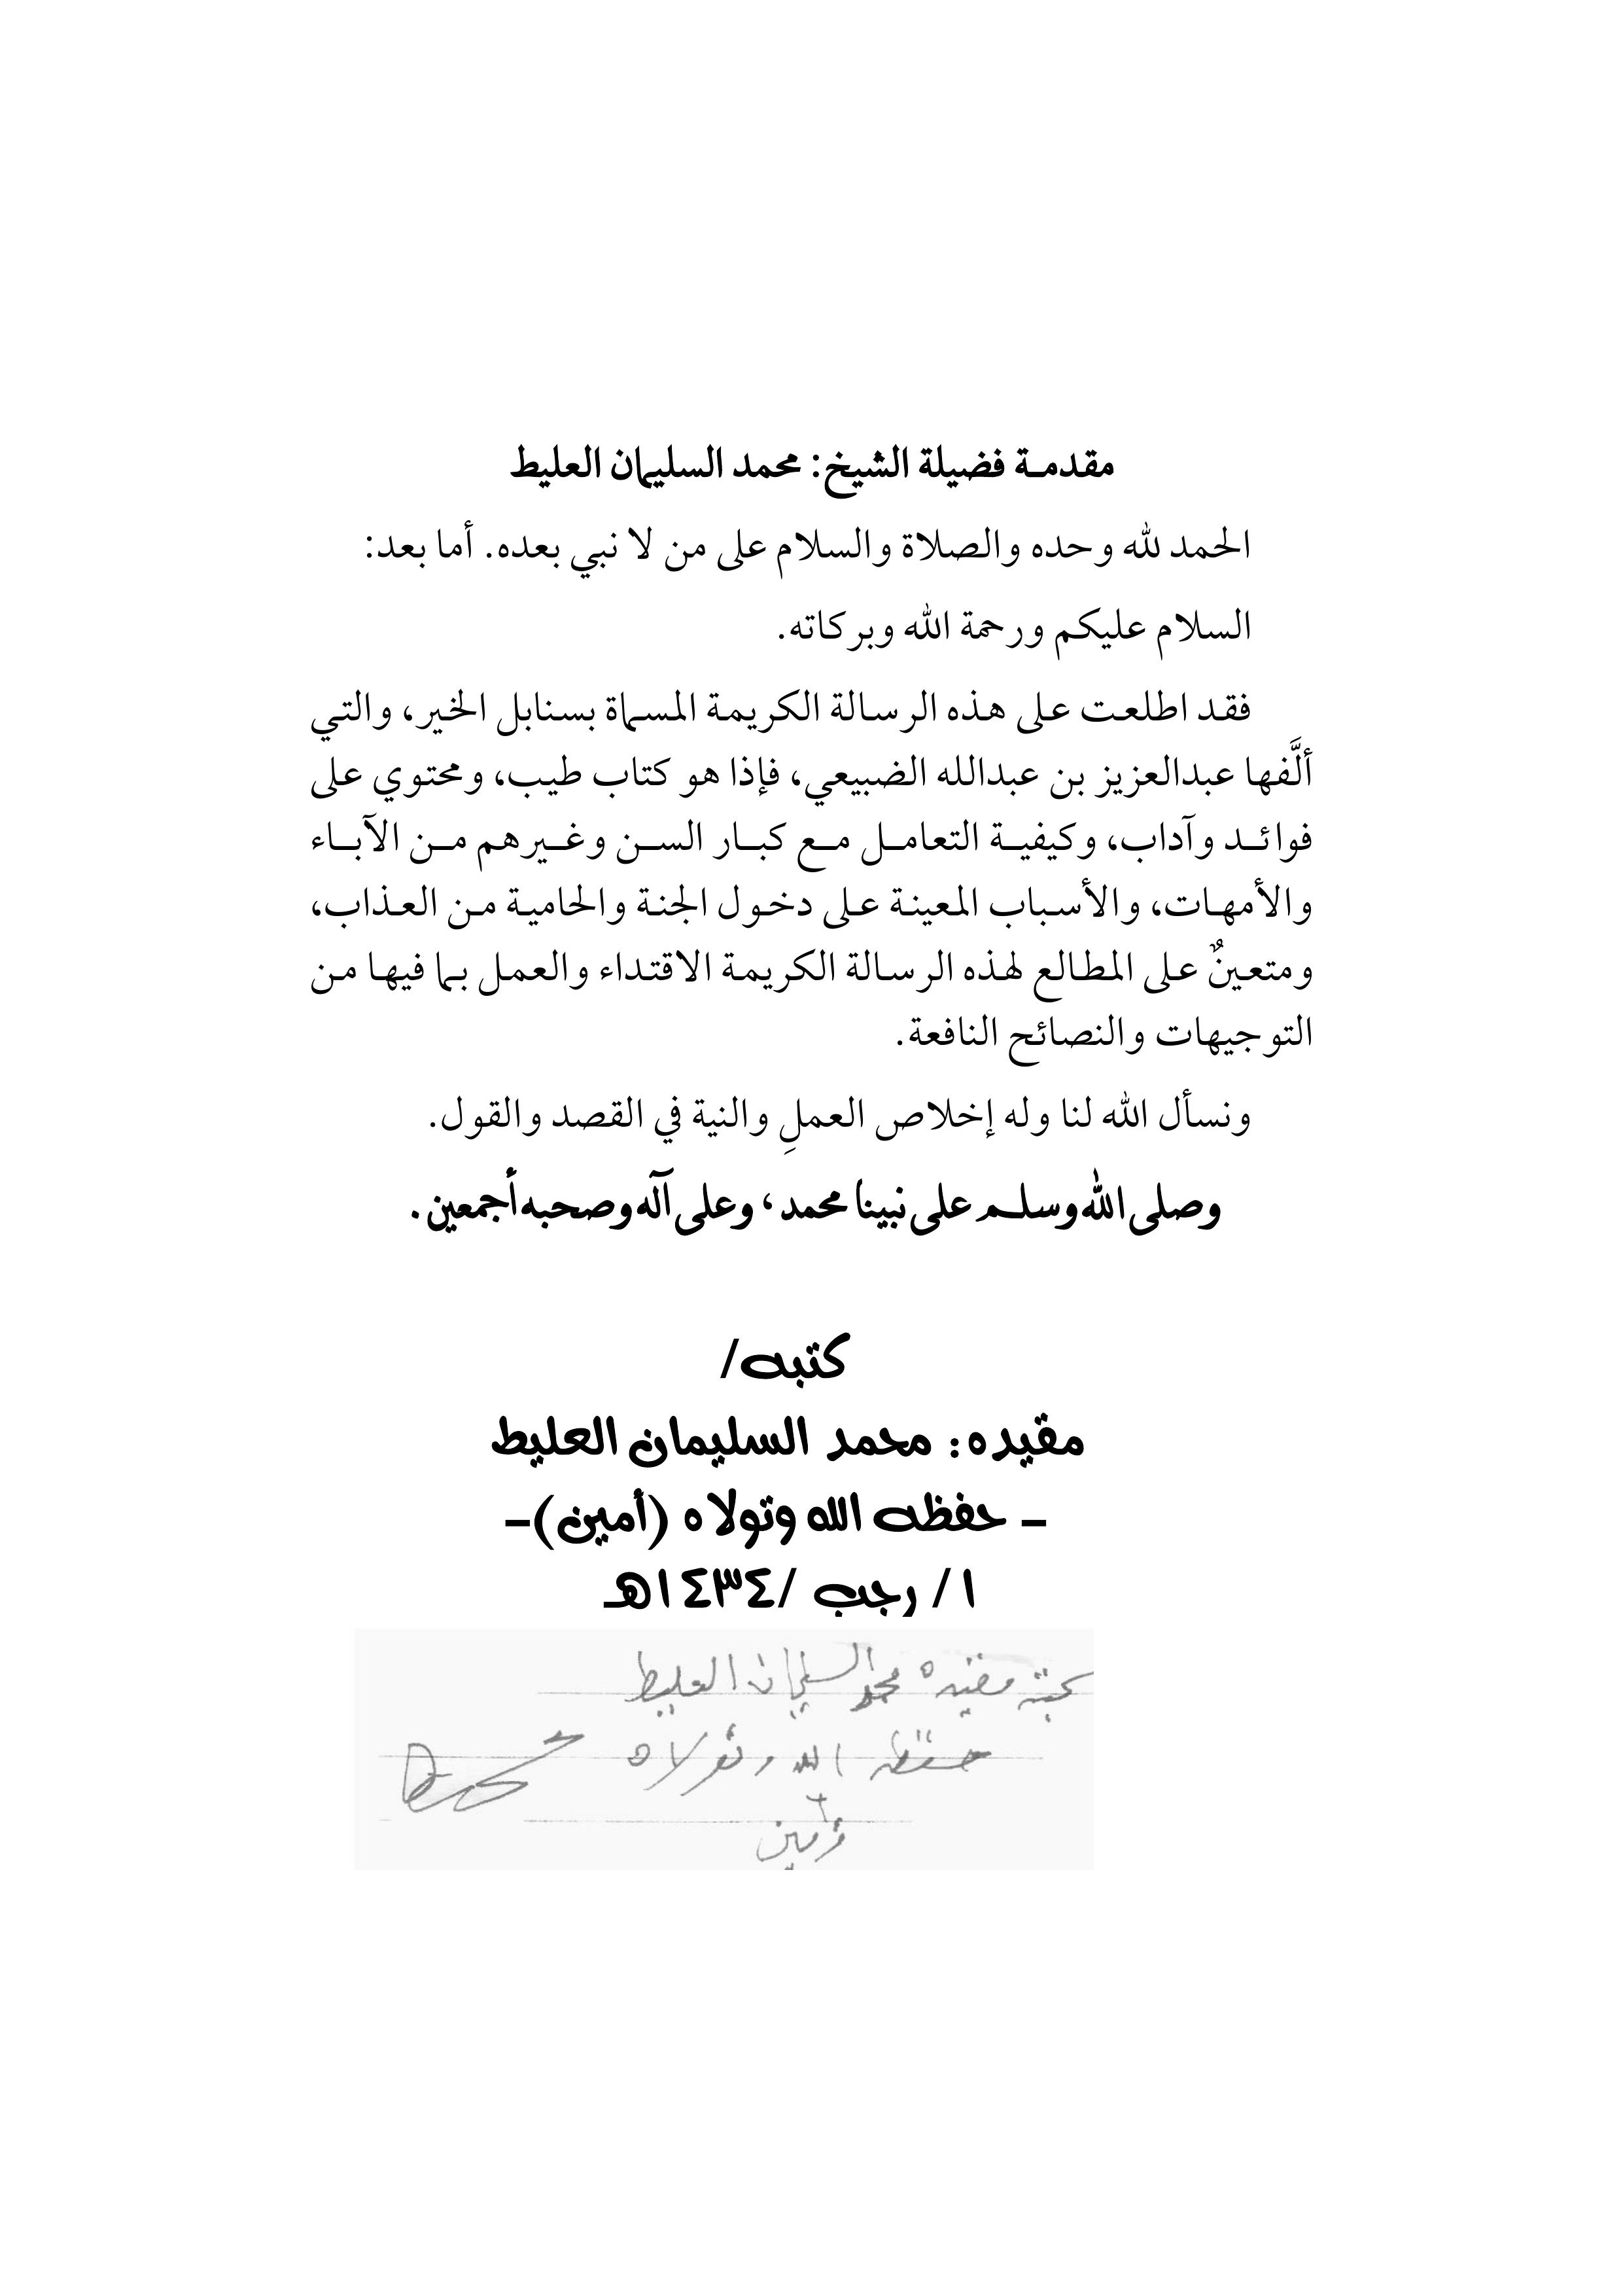 مقدمة فضيلة الشيخ: محمد السليمان العليط
الحمد لله وحده والصلاة والسلام على من لا نبي بعده. أما بعد:
السلام عليكم ورحمة الله وبركاته.
فقد اطلعت على هذه الرسالة الكريمة المسماة بسنابل الخير، والتي
ألَّفها عبدالعزيز بن عبدالله الضبيعي، فإذا هو كتاب طيب، ومحتوي على
فوائد وآداب، وكيفية التعامل مع كبار السن وغيرهم من الآباء
والأمهات، والأسباب المعينة على دخول الجنة والحامية من العذاب،
ومتعينٌ على المطالع لهذه الرسالة الكريمة الاقتداء والعمل بما فيها من
التوجيهات والنصائح النافعة.
ونسأل الله لنا وله إخلاص العملِ والنية في القصد والقول.
وصلى الله وسلم على نبينا محمد، وعلى آله وصحبه أجمعين.
كتبه/
مقيده: محمد السليمان العليط
- حفظه الله وتولاه (أمين)-
١/ رجب /١٤٣٤هـ
كتبه مقيده محمد السليمان العليط
حفظه الله وتولاه
أمين